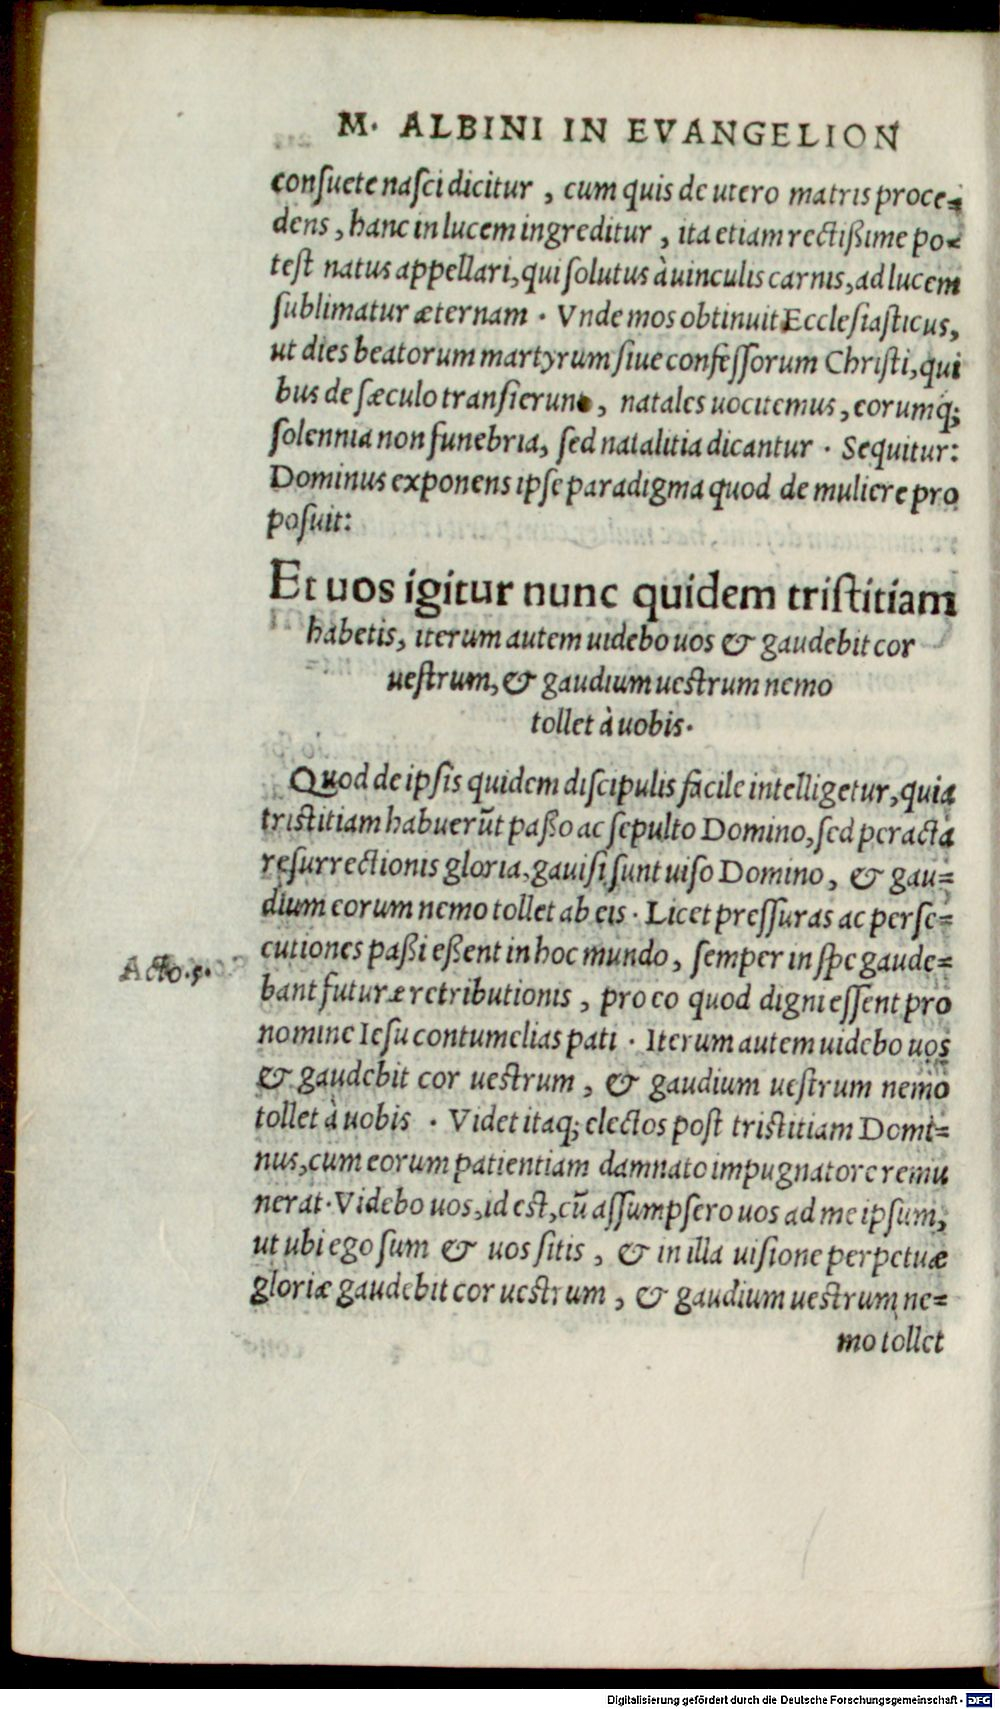 M. ALBINI IN EVANGELION
conſuete naſci dicitur , cum quis de utero matris proce=
dens , hanc in lucem ingreditur , ita etiam rectißime po=
teſt natus appellari, qui ſolutus à uinculis carnis, ad lucem
ſublimatur æternam . Vnde mos obtinuit Eccleſiaſticus,
ut dies beatorum martyrum ſiue confeſſorum Chriſti, qui
bus de ſæculo tranſierunt, natales uocitemus, eorumq;
ſolennia non funebria, ſed natalitia dicantur . Sequitur:
Dominus exponens ipſe paradigma quod de muliere pro
poſuit:
Et uos igitur nunc quidem triſtitiam
habetis, iterum autem uidebo uos & gaudebit cor
ueſtrum, & gaudium ueſtrum nemo
tollet à uobis.
Quod de ipſis quidem diſcipulis facile intelligetur, quia
triſtitiam habuerũt paßo ac ſepulto Domino, ſed peracta
reſurrectionis gloria, gauiſi ſunt uiſo Domino, & gau=
dium eorum nemo tollet ab eis . Licet preſſuras ac perſe=
cutiones paßi eßent in hoc mundo, ſemper in ſpe gaude=
Acto.5.
bant futuræ retributionis , pro eo quod digni eſſent pro
nomine Ieſu contumelias pati . Iterum autem uidebo uos
& gaudebit cor ueſtrum , & gaudium ueſtrum nemo
tollet à uobis . Videt itaq; electos poſt triſtitiam Domi=
nus, cum eorum patientiam damnato impugnatore remu
nerat. Videbo uos, id eſt, cũ aſſumpſero uos ad me ipſum,
ut ubi ego ſum & uos ſitis , & in illa uiſione perpetuæ
gloriæ gaudebit cor ueſtrum , & gaudium ueſtrum ne=
mo tollet
Digitalisierung gefördert durch die Deutsche Forschungsgemeinschaft - DFG